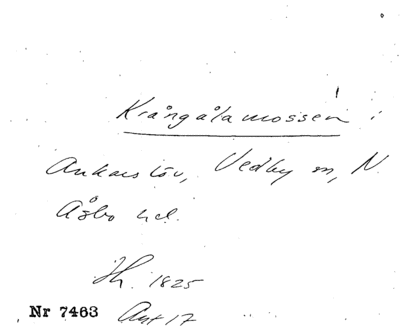 Krångålamossen i
Ankarslöv, Vedby sn, N.
Åsbo hd.
Jh. 1825
Nr 7463 Ant 17